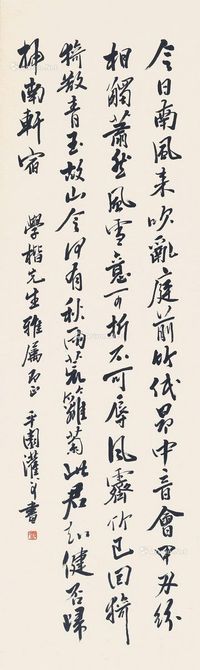 今日南風来吹亂庭前竹低昂中音會甲刃紛
相觸蕭然風雪意可折不可辱風霽竹已回猗
猗散青玉故山今何有秋雨荒籬菊此君知健否歸
掃南軒宿 學楷先生雅屬即正 平園 書